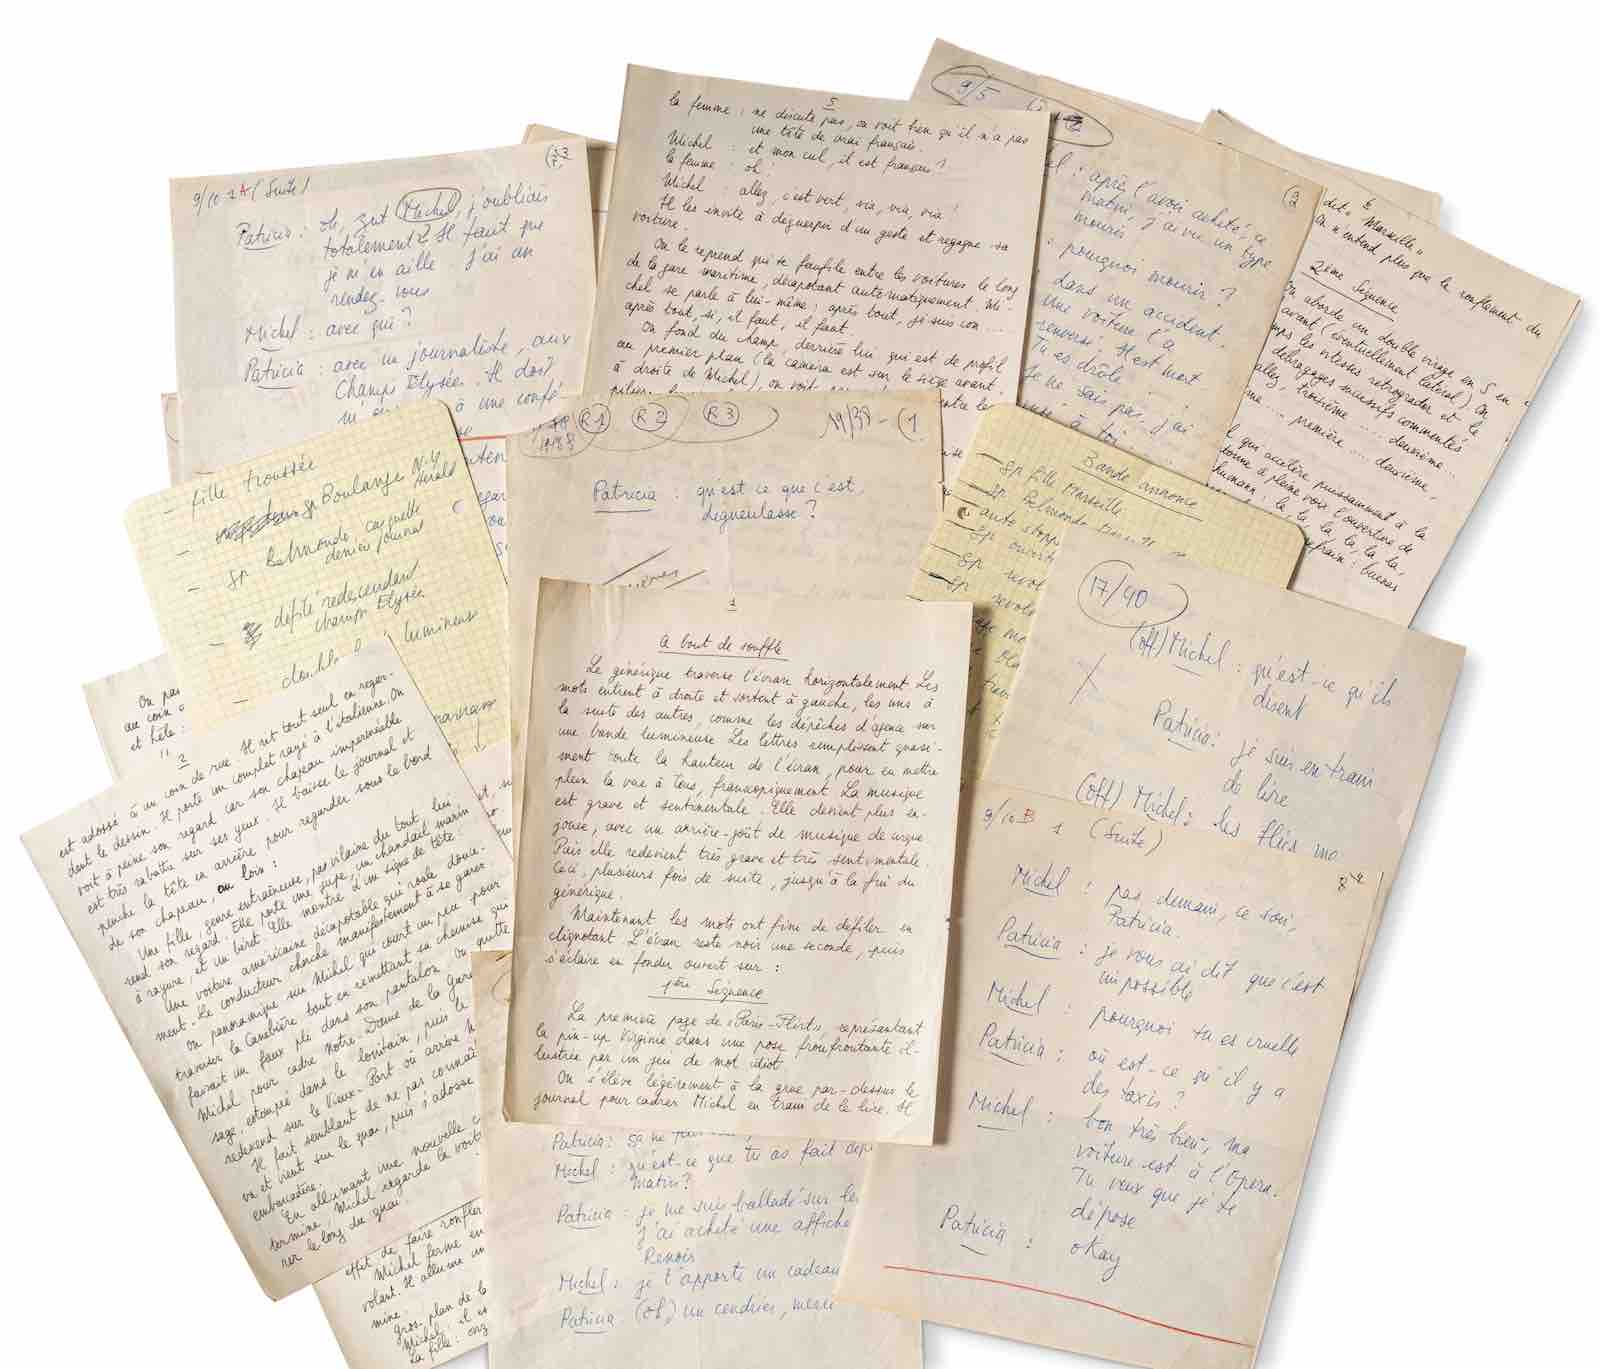 9/10 2 A (Suite)
Patricia : oh, zut Michel, j'oubliais
totalement Il faut que
je m'en aille. J'ai un
rendez-vous
Michel : avec qui ?
Patricia : avec un journaliste, aux
Champs Elysée. Il doit
à une confé
5
la femme : ne discute pas, on voit bien qu'il n'a pas
une tête de vrai français.
Michel : et mon cul, il est français ?
la femme : oh !
Michel : allez, c'est vert, via, via, via !
Il les invite à déguerpir d'un geste et regagne sa
voiture.
On le reprend qui se faufile entre les voitures le long
de la gare maritime, décapotant automatiquement. Mi-
chel se parle à lui-même : après tout, je suis con ...
après tout, si, il faut, il faut.
En fond du champ, derrière lui qui est de profil
au premier plan (la camera est sur le siège avant
à droite de Michel), on voit
9/5
2
: après l'avoir acheté, ce
matin, j'ai vu un type
mourir
: pourquoi mourir ?
dans un accident.
Une voiture l'a
renversé. Il est mort.
Tu es drôle
Je ne sais pas, j'ai
6
dit « Marseille »
On n'entend plus que le ronflement du
2ème Séquence
On aborde un double virage en S en
avant (éventuellement latéral). On
les vitesses rétrograder et le
débrayages successifs commentés
allez, troisième ..... deuxième ..
.... première .... deuxième,
qui accélère puissamment à la
tonne à pleine voix l'ouverture de
Schumann : la, la, la, la, la,
refrain : buenas
- fille troussée
- gp Boulange N.Y
Herald
- gp Belmondo casquette
dernier journal
- défilé redescendant
champs Elysée
lumineux
R1 R2 R3
Patricia : qu'est ce que c'est,
dégueulasse ?
Bande annonce
- gp fille Marseille
- gp Belmondo
- auto stopp
- gp
- gp revol
17/40
(off) Michel : qu'est-ce qu'ils
disent
Patricia : je suis en train
de lire
(off) Michel : les
1
A bout de souffle
Le générique traverse l'écran horizontalement. Les
mots entrent à droite et sortent à gauche, les uns à
la suite des autres, comme les dépêches d'agence sur
une bande lumineuse. Les lettres remplissent quasi-
ment toute la hauteur de l'écran, pour en mettre
plein la vue à tous, franscopiquement. La musique
est grave et sentimentale. Elle devient plus en-
jouée, avec un arrière-goût de musique de cirque.
Puis elle redevient très grave et très sentimentale.
Ceci, plusieurs fois de suite, jusqu'à la fin du
générique.
Maintenant les mots ont fini de défiler en
clignotant. L'écran reste noir une seconde, puis
s'éclaire en fondu ouvert sur :
1ère Séquence
La première page de « Paris-Flirt », représentant
la pin-up Virginie dans une pose froufroutante il-
lustrée par un jeu de mot idiot.
On s'élève légèrement à la grue par-dessus le
journal pour cadrer Michel en train de le lire. Il
On pas
au coin
et hèle :
2
est adossé à un coin de rue. Il rit tout seul en regar-
dant le dessin. Il porte un complet rayé à l'italienne. On
voit à peine son regard car son chapeau imperméable
est très rabattu sur ses yeux. Il baisse le journal et
penche la tête en arrière pour regarder sous le bord
de son chapeau, au loin :
Une fille, genre entraîneuse, pas vilaine du tout, lui
rend son regard. Elle porte une jupe, un chandail marin
à rayure, et un béret. Elle montre d'un signe de tête :
Une voiture américaine décapotable qui roule douce-
ment. Le conducteur cherche manifestement à se garer.
On panoramique sur Michel qui court un peu pour
traverser la Canebière tout en remettant sa chemise qui
faisait un faux pli dans son pantalon. On quitte
Michel pour cadrer Notre-Dame de la Garde
estompée dans le lointain, puis le
redescend sur le Vieux-Port où arrive M
Il fait semblant de ne pas connaît
va et vient sur le quai, puis s'adosse
embarcadère.
En allumant une nouvelle c
termine, Michel regarde la voit
rer le long du quai.
effet de faire ronfler
Michel ferme en
volant. Il allume un
mine.
gros plan de l
Michel : il es
La fille : onz
9/10 B 1 (Suite)
Michel : pas demain, ce soir,
Patricia.
Patricia : je vous ai dit que c'est
impossible
Michel : pourquoi tu es cruelle
Patricia : où est-ce qu'il y a
des taxis ?
Michel : bon très bien, ma
voiture est à l'Opera.
Tu veux que je te
dépose
Patricia : okay
Patricia : ça ne
Michel : qu'est-ce que tu as fait depuis
matin ?
Patricia : je me suis balladé sur les
J'ai acheté une affiche
Renoir
Michel : je t'apporte un cadeau
Patricia : (oh,) un cendrier, merci